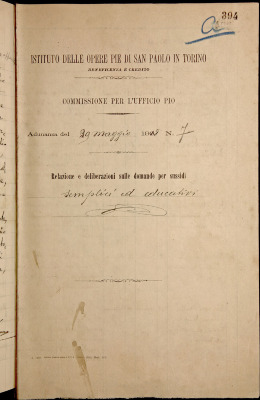 394
ISTITUTO DELLE OPERE PIE DI SAN PAOLO IN TORINO
BENEFICENZA E CREDITO
COMMISSIONE PER L'UFFICIO PIO
Adunanza del 29 maggio N. 7
Relazione e deliberazioni sulle domande per sussidi
semplici ed educativi